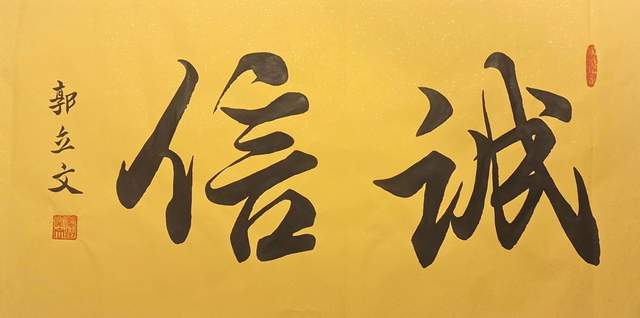 诚信
郭立文